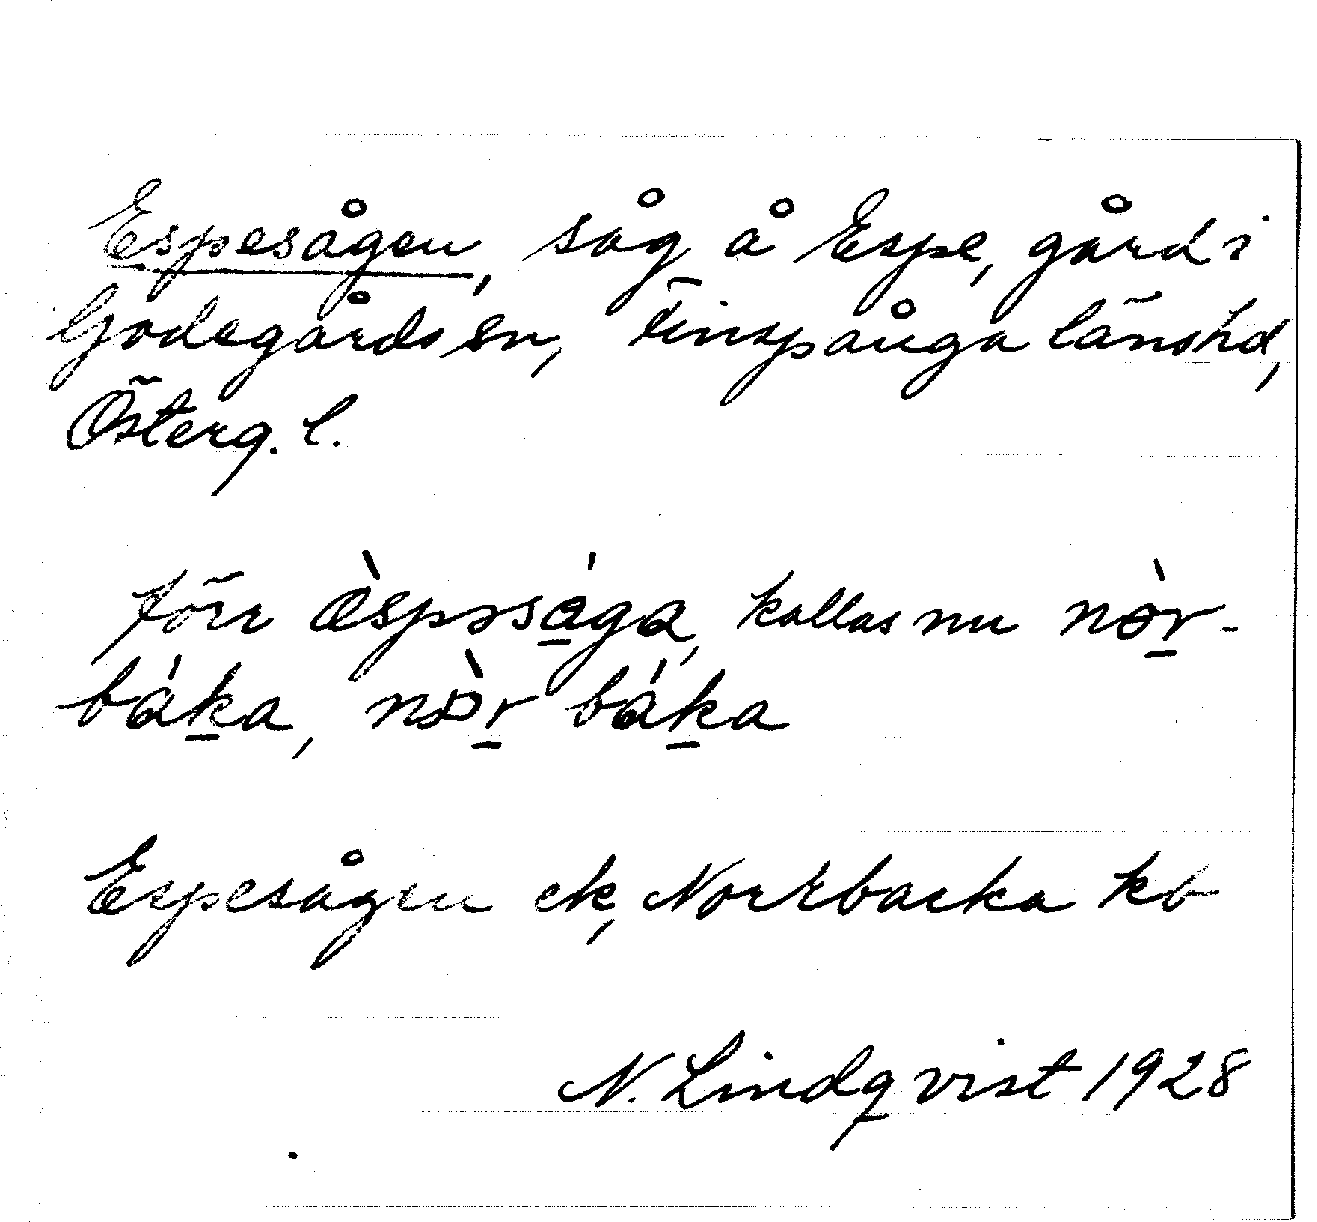 Espesågen, såg å Espe, gård i
Godegårds sn, Finspånga länshd,
Österg. l.
förr æ̀spəsága, kallas nu nòr-
báka, nòr báka
Espesågen ek, Norrbacka kb
N. Lindqvist 1928